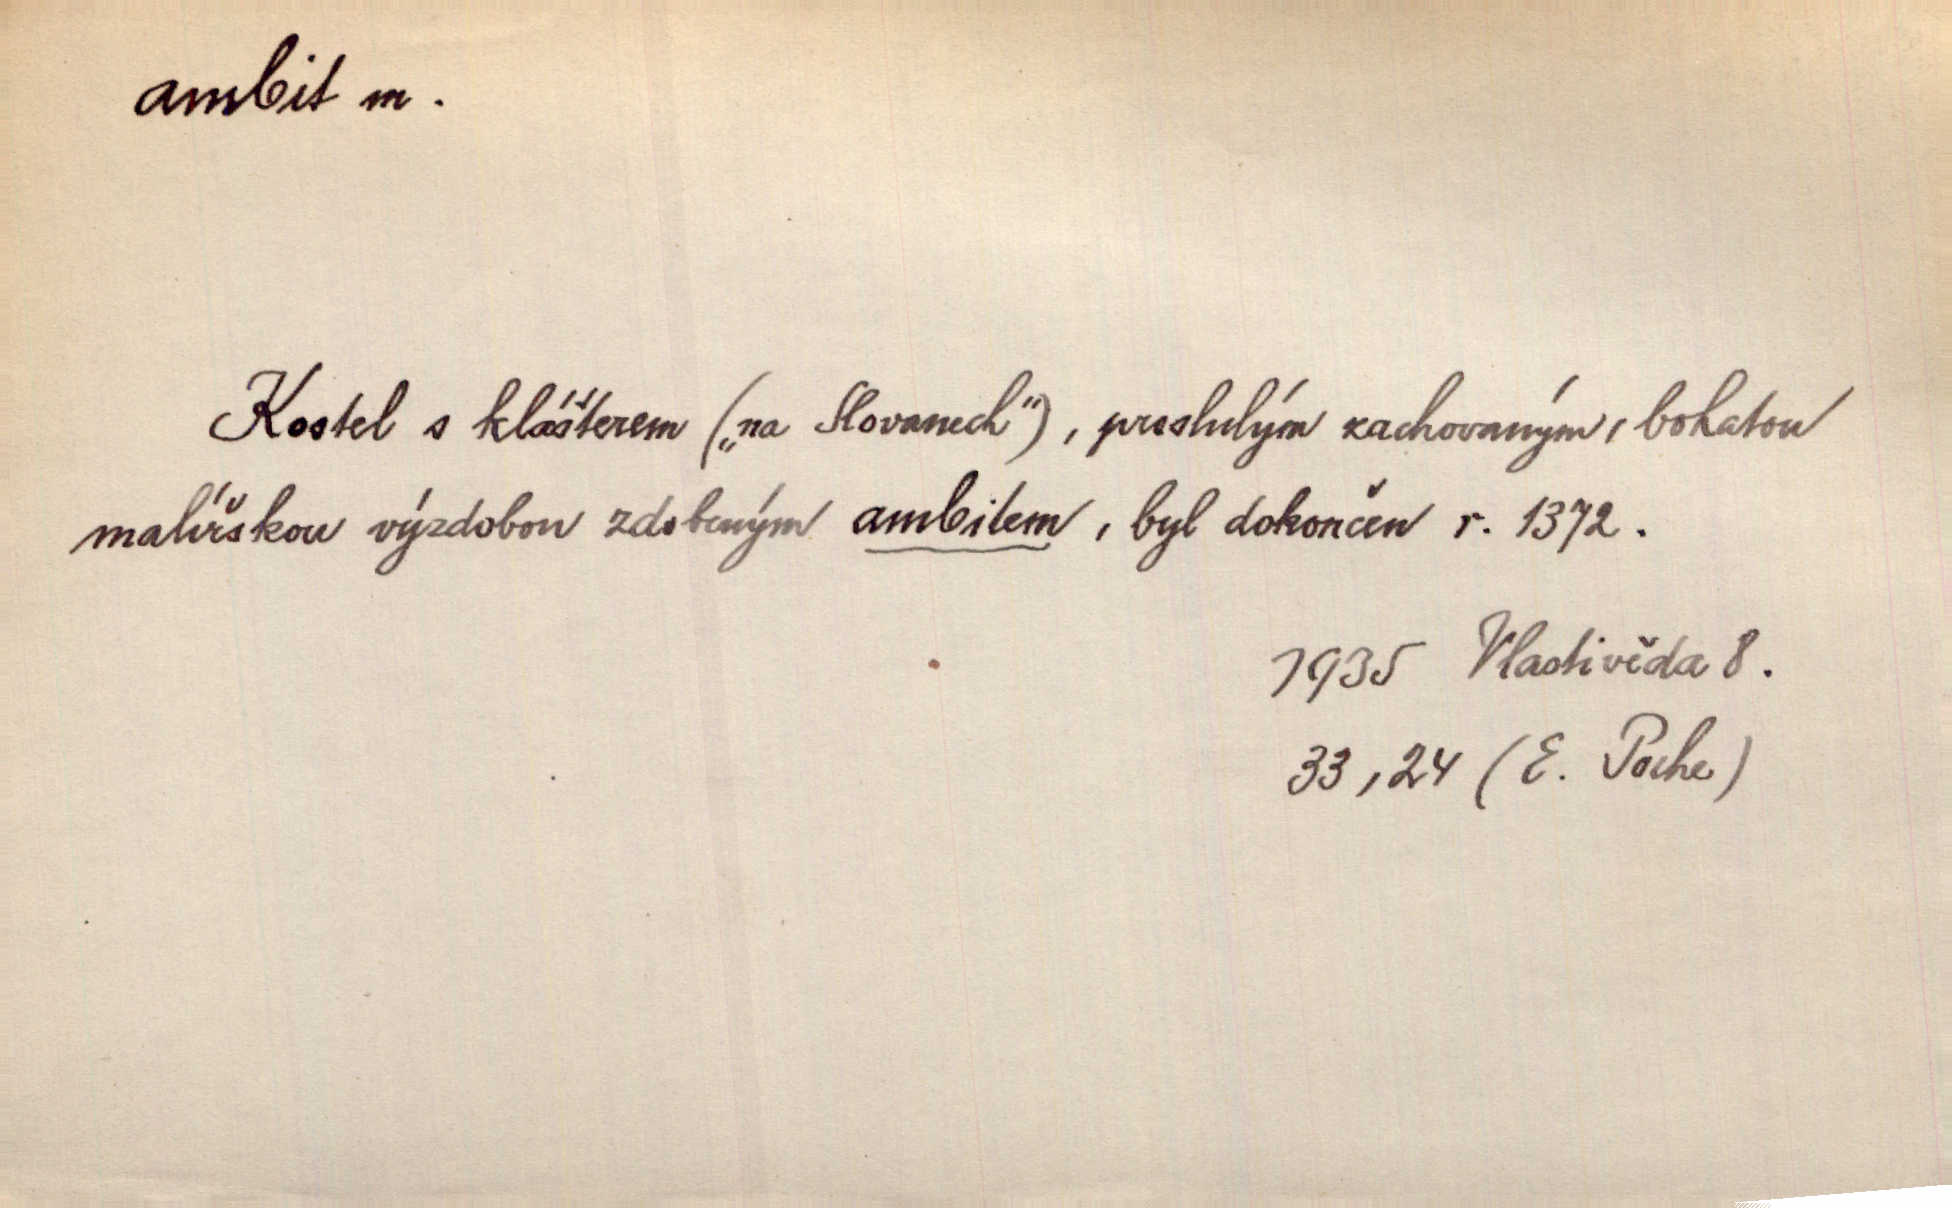 ambit m.
Kostel s klášterem („na Slovanech“), proslulým zachovaným, bohatou
malířskou výzdobou zdobeným ambitem, byl dokončen r. 1372.
1935 Vlastivěda 8.
33, 24 (E. Poche)